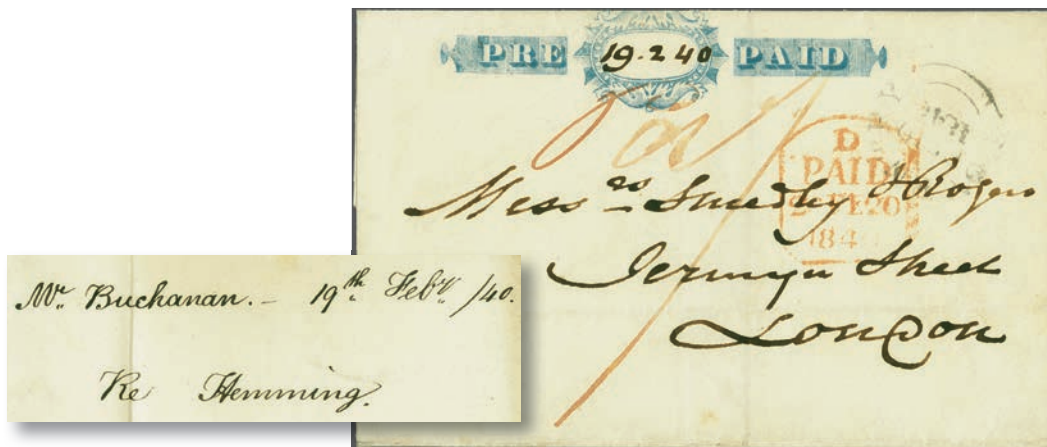 PRE 19.2 40 PAID
Paid
D
PAID
20 FE 20
184
Messrs Smedley & Rogers
Jermyn Street
London
Mr. Buchanan. – 19th Feby. /40.
Re Hemming.